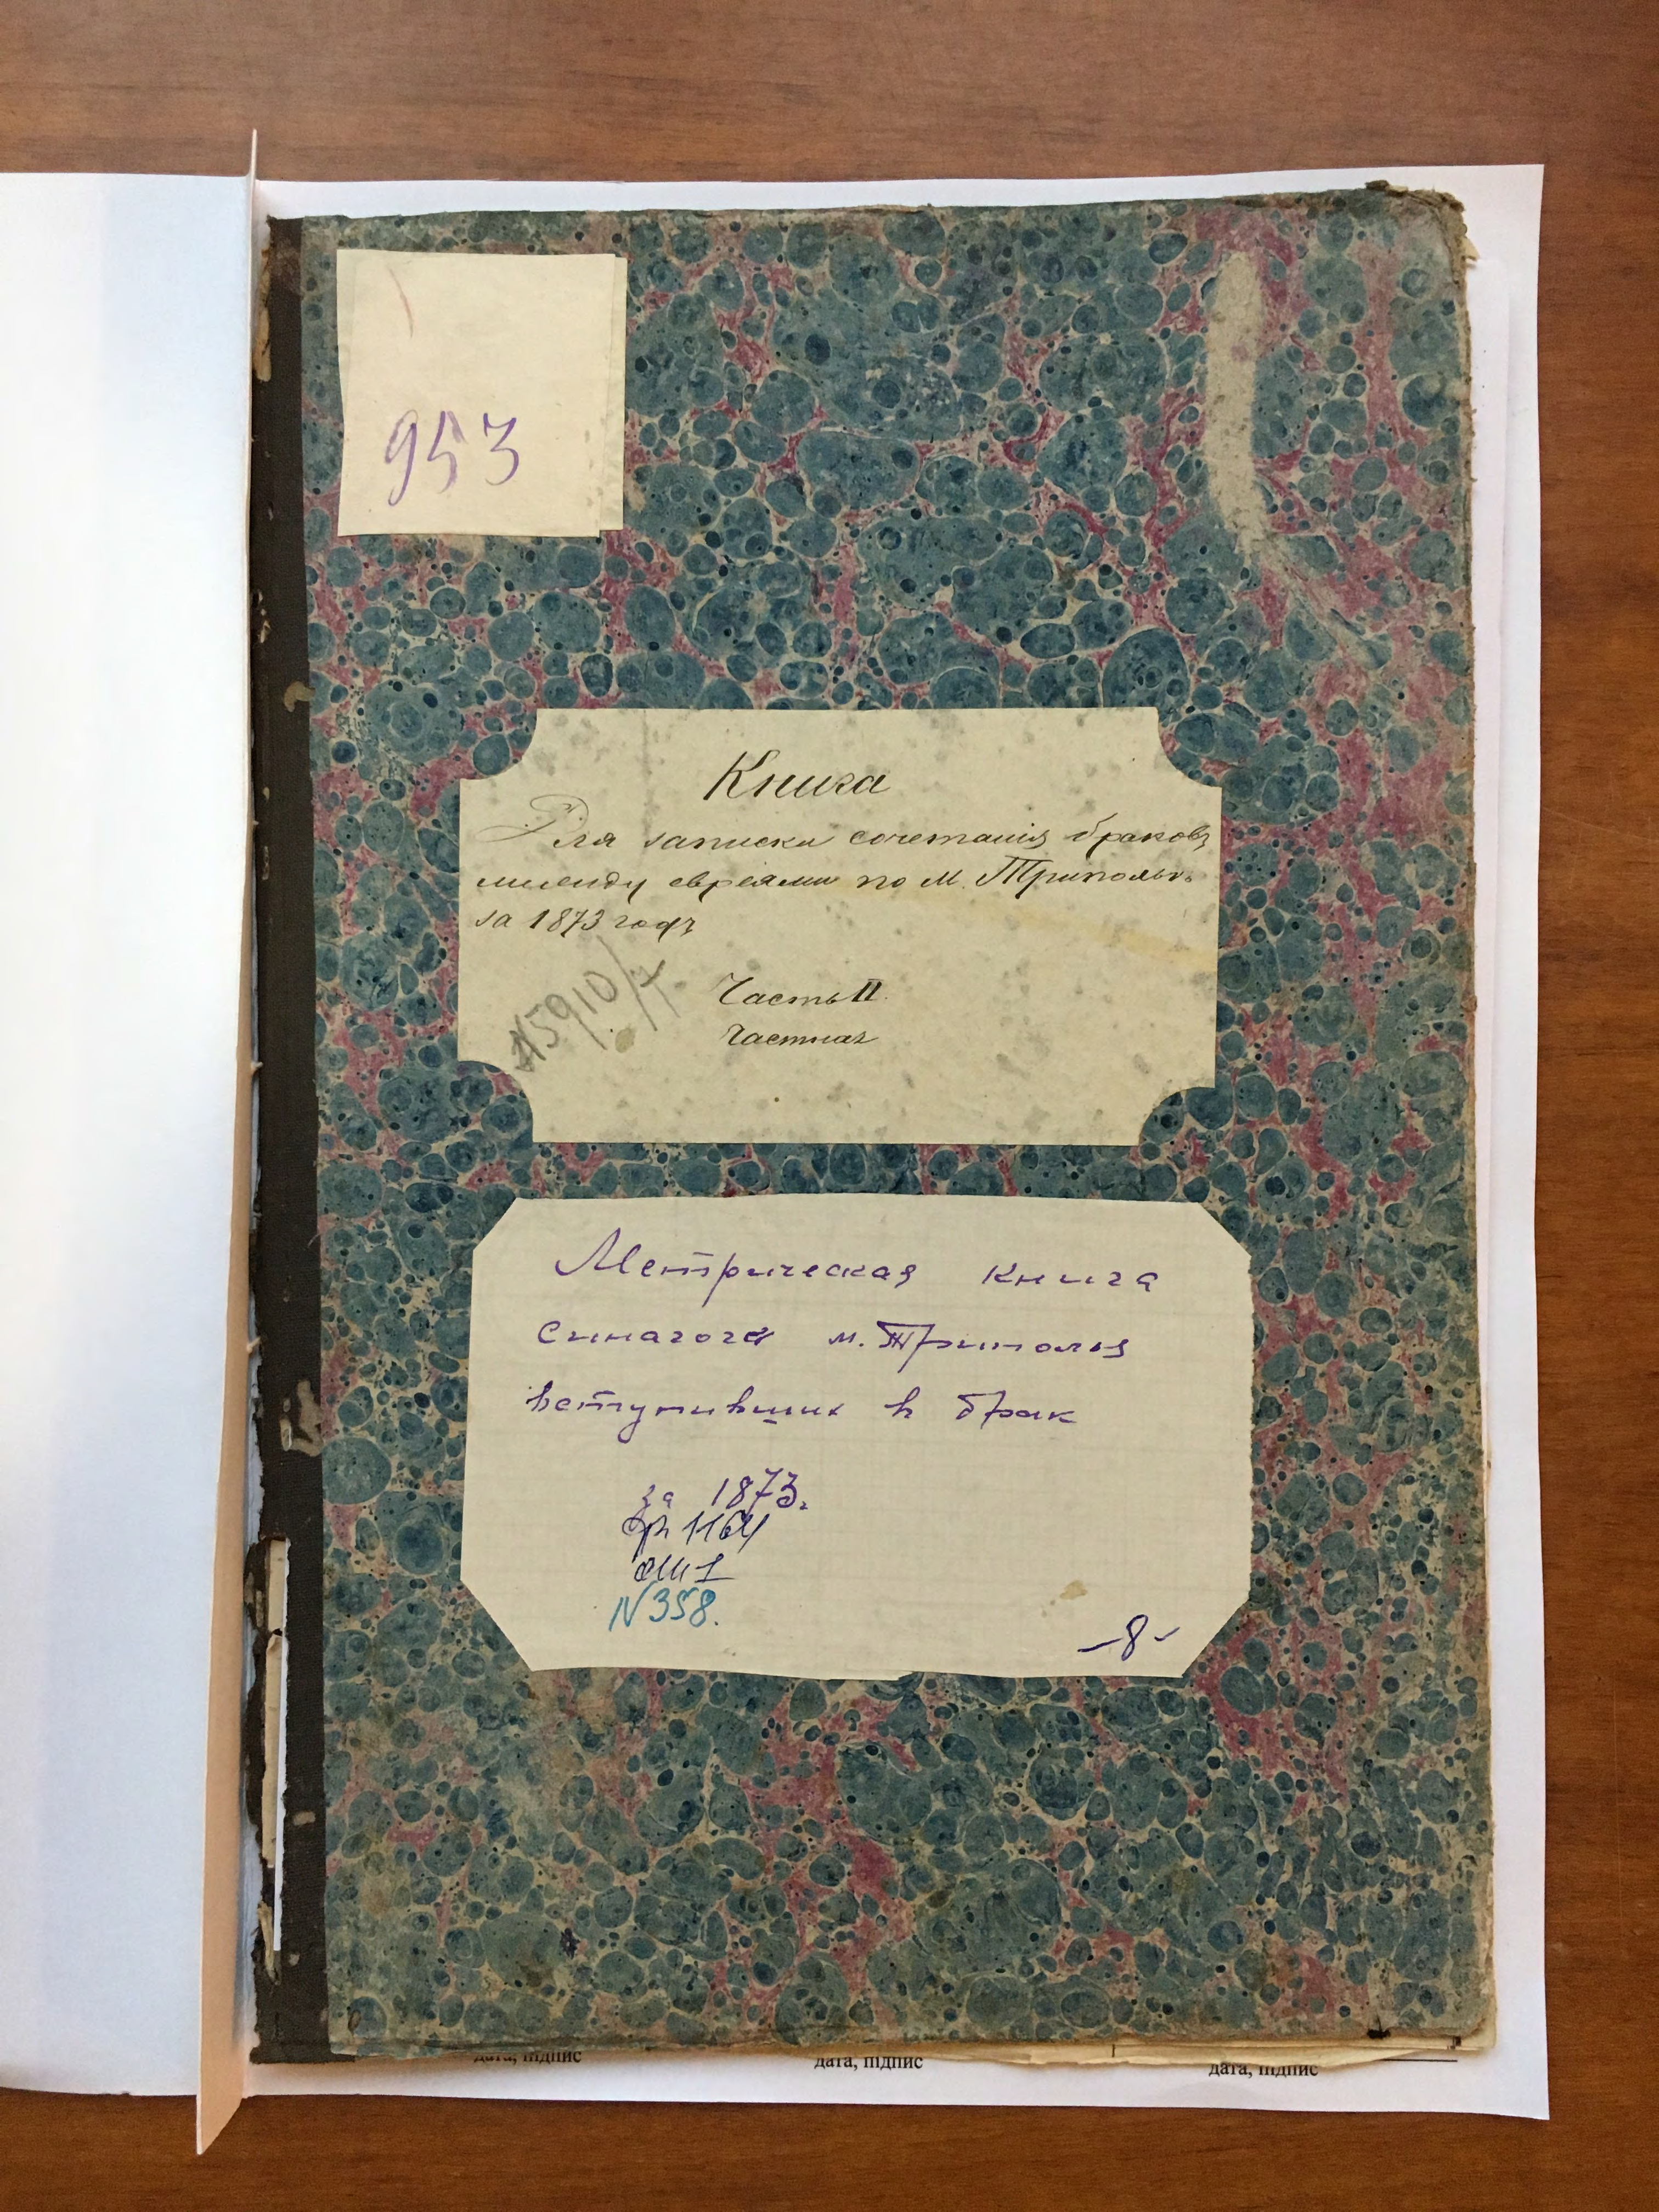 953
Книга
Для записки сочетанія браковъ
между евреями по М. Триполью
за 1873 годъ
Часть II.
Частная
№5910/7
Метрическая книга
синагоги м. Триполья
вступивших в брак
за 1873.
фр 1164
оп 1
N 358.
-8-
дата, підпис
дата, підпис
дата, підпис